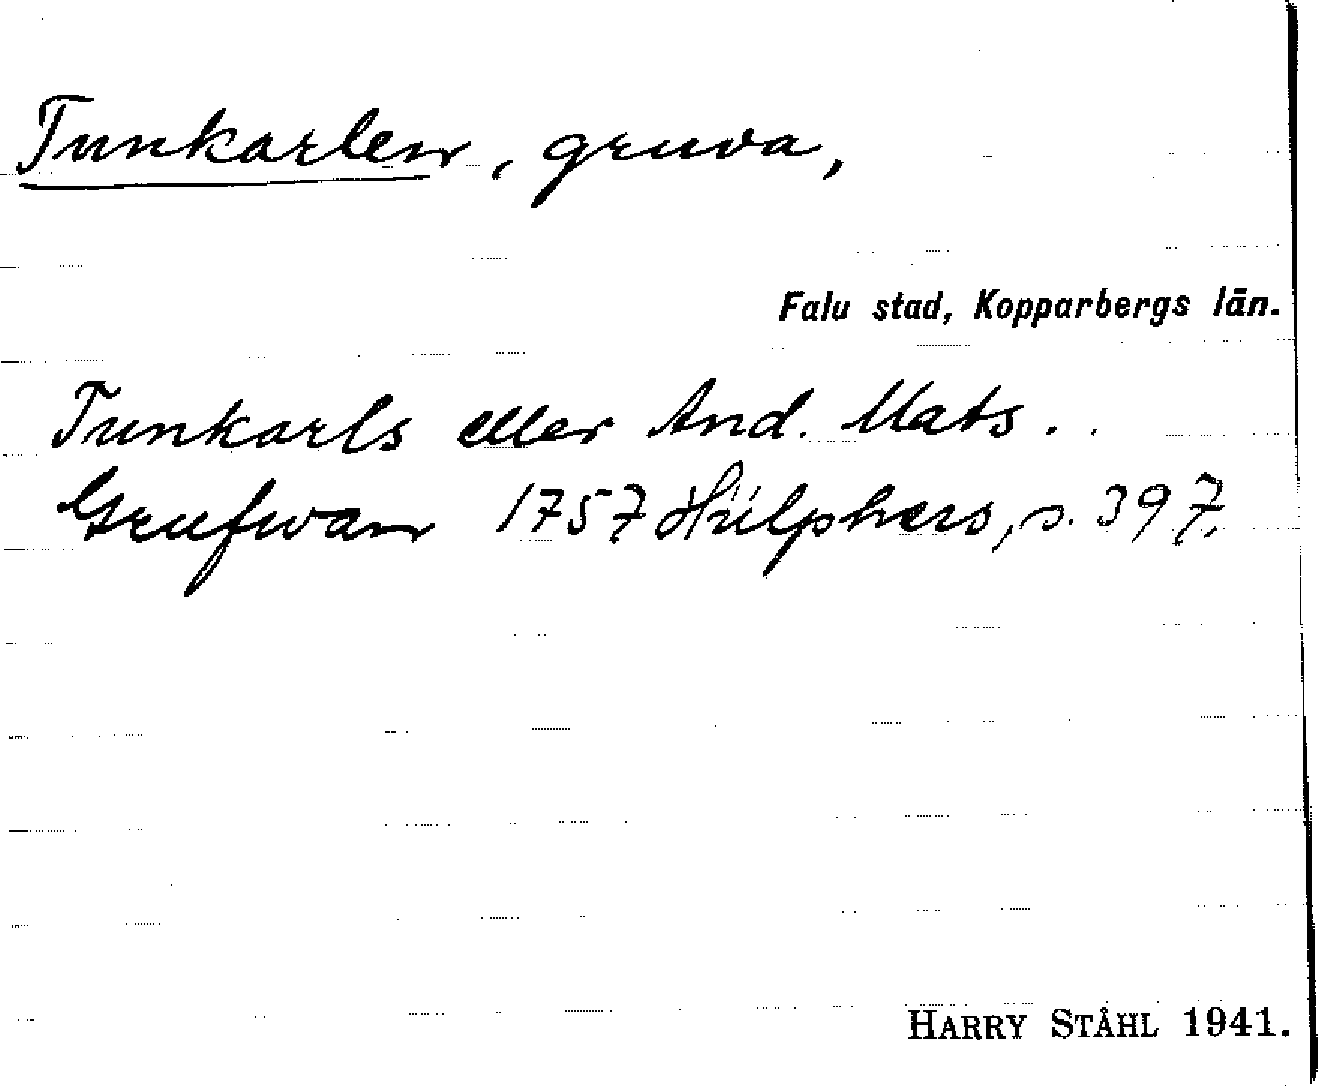 Tunkarlen, gruva,
Falu stad, Kopparbergs län.
Tunkarls eller And. Mats . .
Grufwan 1757 Hülphers, s. 397.
HARRY STÅHL 1941.